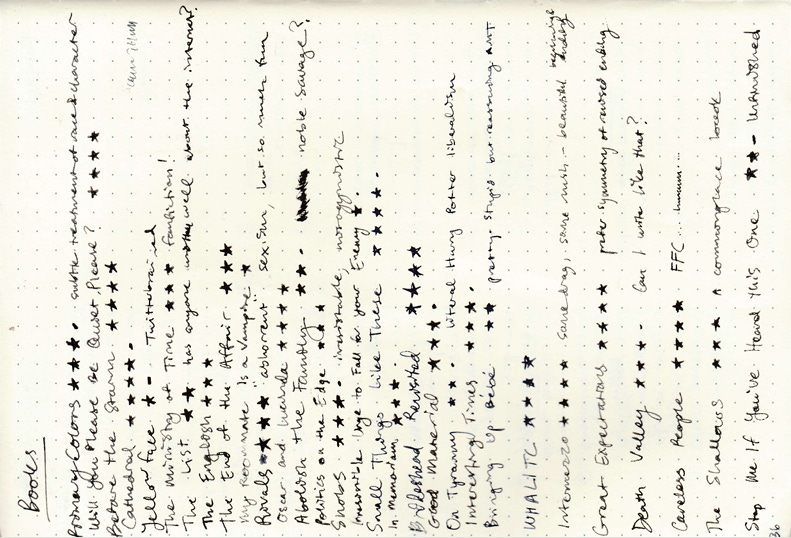 Books
Primary Colors ★★★· subtle treatment of race & character
Will You Please Be Quiet Please? ★★★★
Before the Storm ★★★★
Cathedral ★★★★·
Yellowface ★· Twitterbrained
The Ministry of Time ★★★ fanfiction!
The List ★★ has anyone written well about the internet?
The English ★★★
The End of the Affair ★★★
My Roommate is a Vampire ★
Rivals ★★★★ abhorrent sexism, but so much fun
Oscar and Lucinda ★★★★
Abolish the Family ★★· noble savage?
Politics on the Edge ★★★
Snobs ★★★· irresistable, misogynistic
Irresistible Urge to Fall for your Enemy ★·
Small Things Like These ★★★★·
In Memoriam ★★★
Brideshead Revisited ★★★★
Good Material ★★★·
On Tyranny ★★· literal Harry Potter liberalism
Interesting Times ★★★·
Bringing Up Bébé ★★ pretty stupid but reassuring
WHALITC ★★★★
Intermezzo ★★★★ some drag, some mush – beautiful beginning ending
Great Expectations ★★★★ prefer symmetry of revised ending
Death Valley ★★★· Can I write like that?
Careless People ★★★★ FFC... hmmm...
The Shallows ★★★ A commonplace book
Stop Me If You've Heard This One ★★· unfinished
36